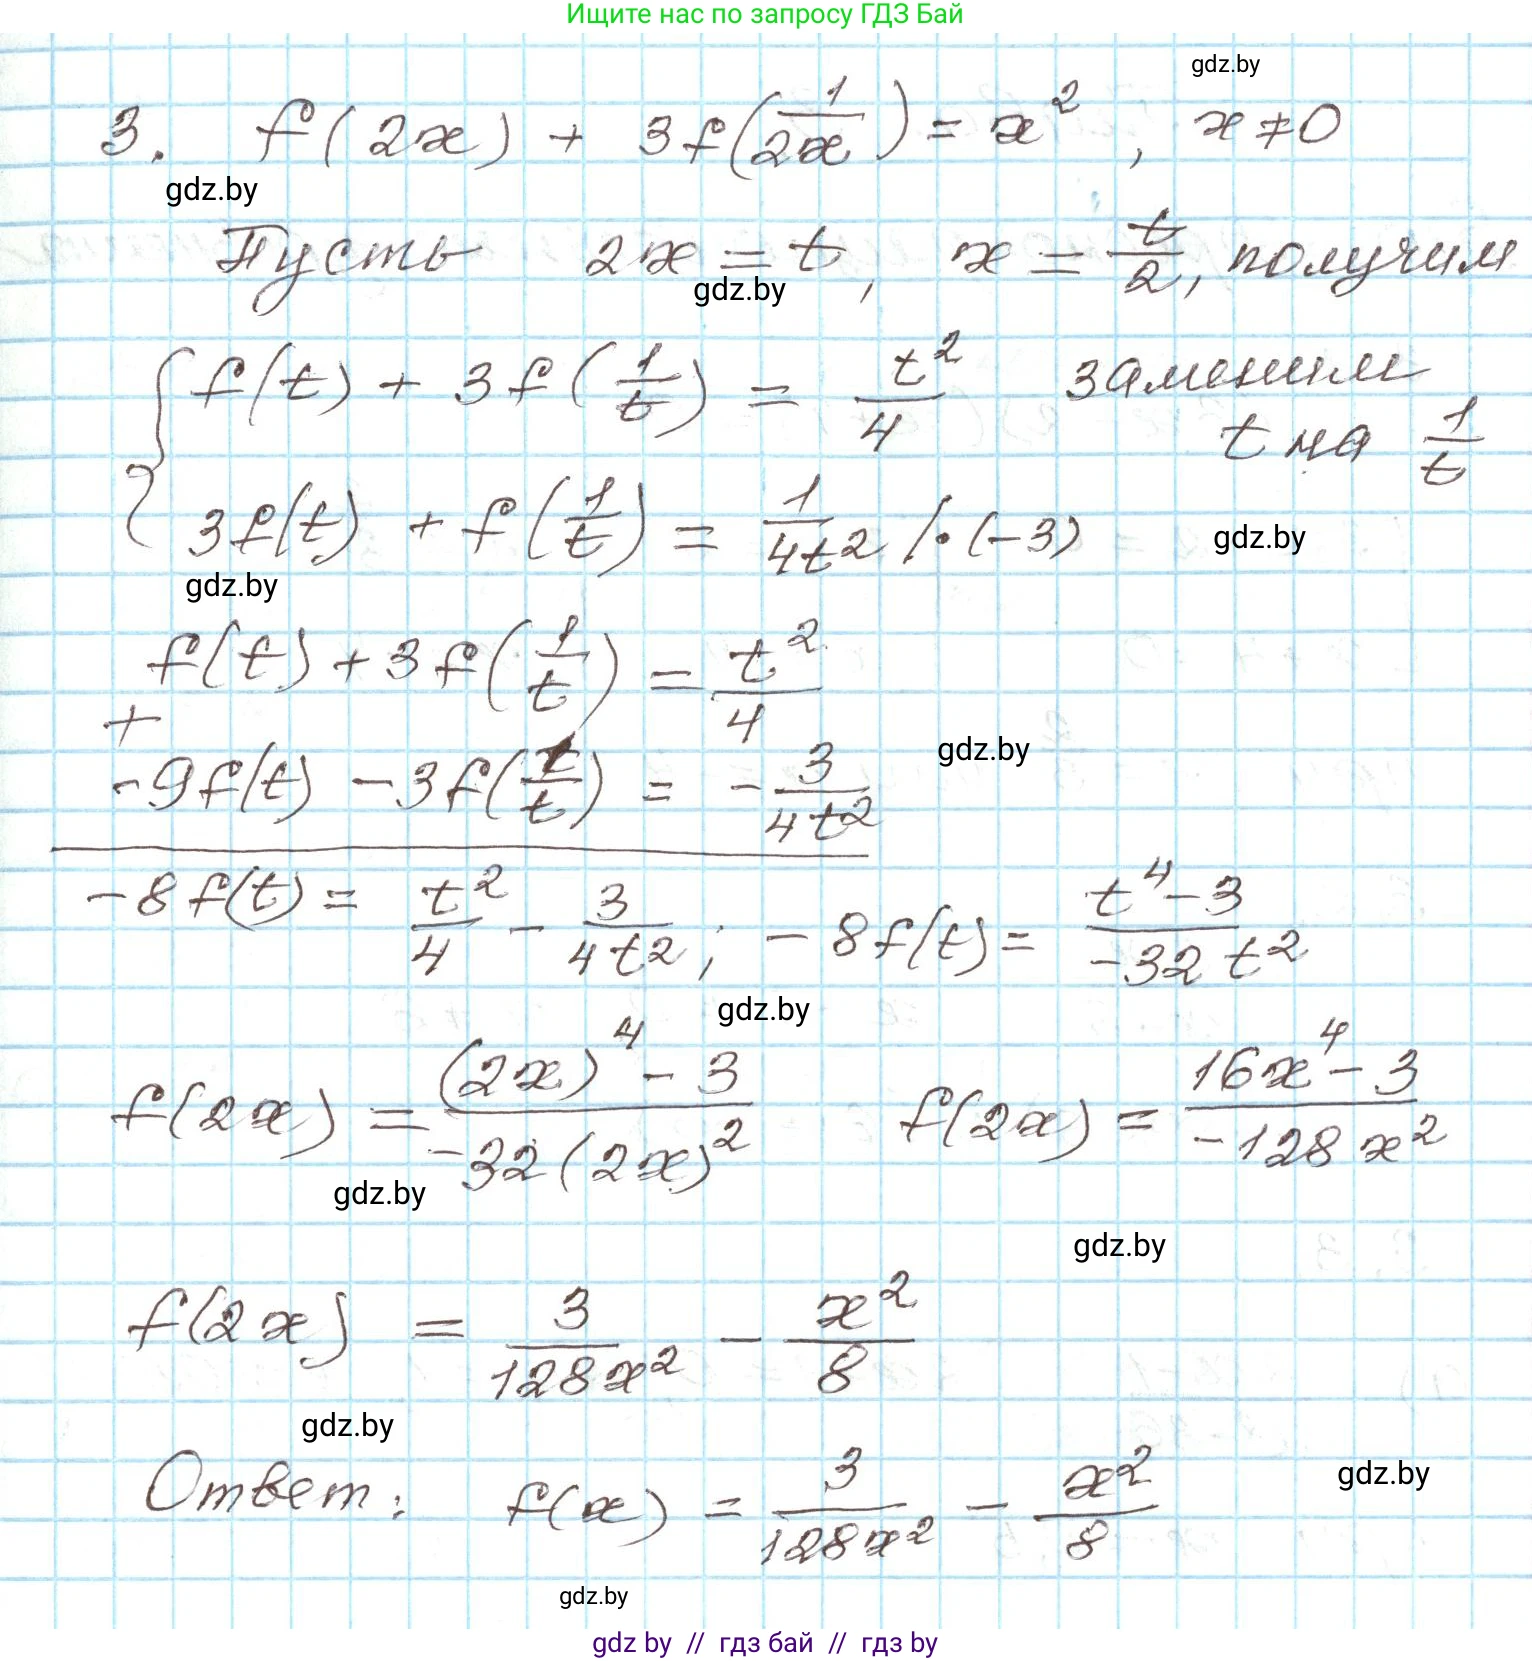 Ищите нас по запросу ГДЗ Бай
gdz.by
3. f(2x) + 3f(1/(2x)) = x², x ≠ 0
gdz.by
Пусть 2x = t, x = t/2, получим
gdz.by
{ f(t) + 3f(1/t) = t²/4 заменим
t на 1/t
3f(t) + f(1/t) = 1/(4t²) /·(-3)
gdz.by
gdz.by
f(t) + 3f(1/t) = t²/4
+
gdz.by
-9f(t) - 3f(1/t) = -3/(4t²)
-8f(t) = t²/4 - 3/(4t²); -8f(t) = (t⁴-3)/(-32t²)
gdz.by
f(2x) = ((2x)⁴ - 3)/(-32(2x)²) f(2x) = (16x⁴ - 3)/(-128x²)
gdz.by
gdz.by
f(2x) = 3/(128x²) - x²/8
gdz.by
Ответ: f(x) = 3/(128x²) - x²/8
gdz.by
gdz.by
gdz by // гдз бай // гдз by